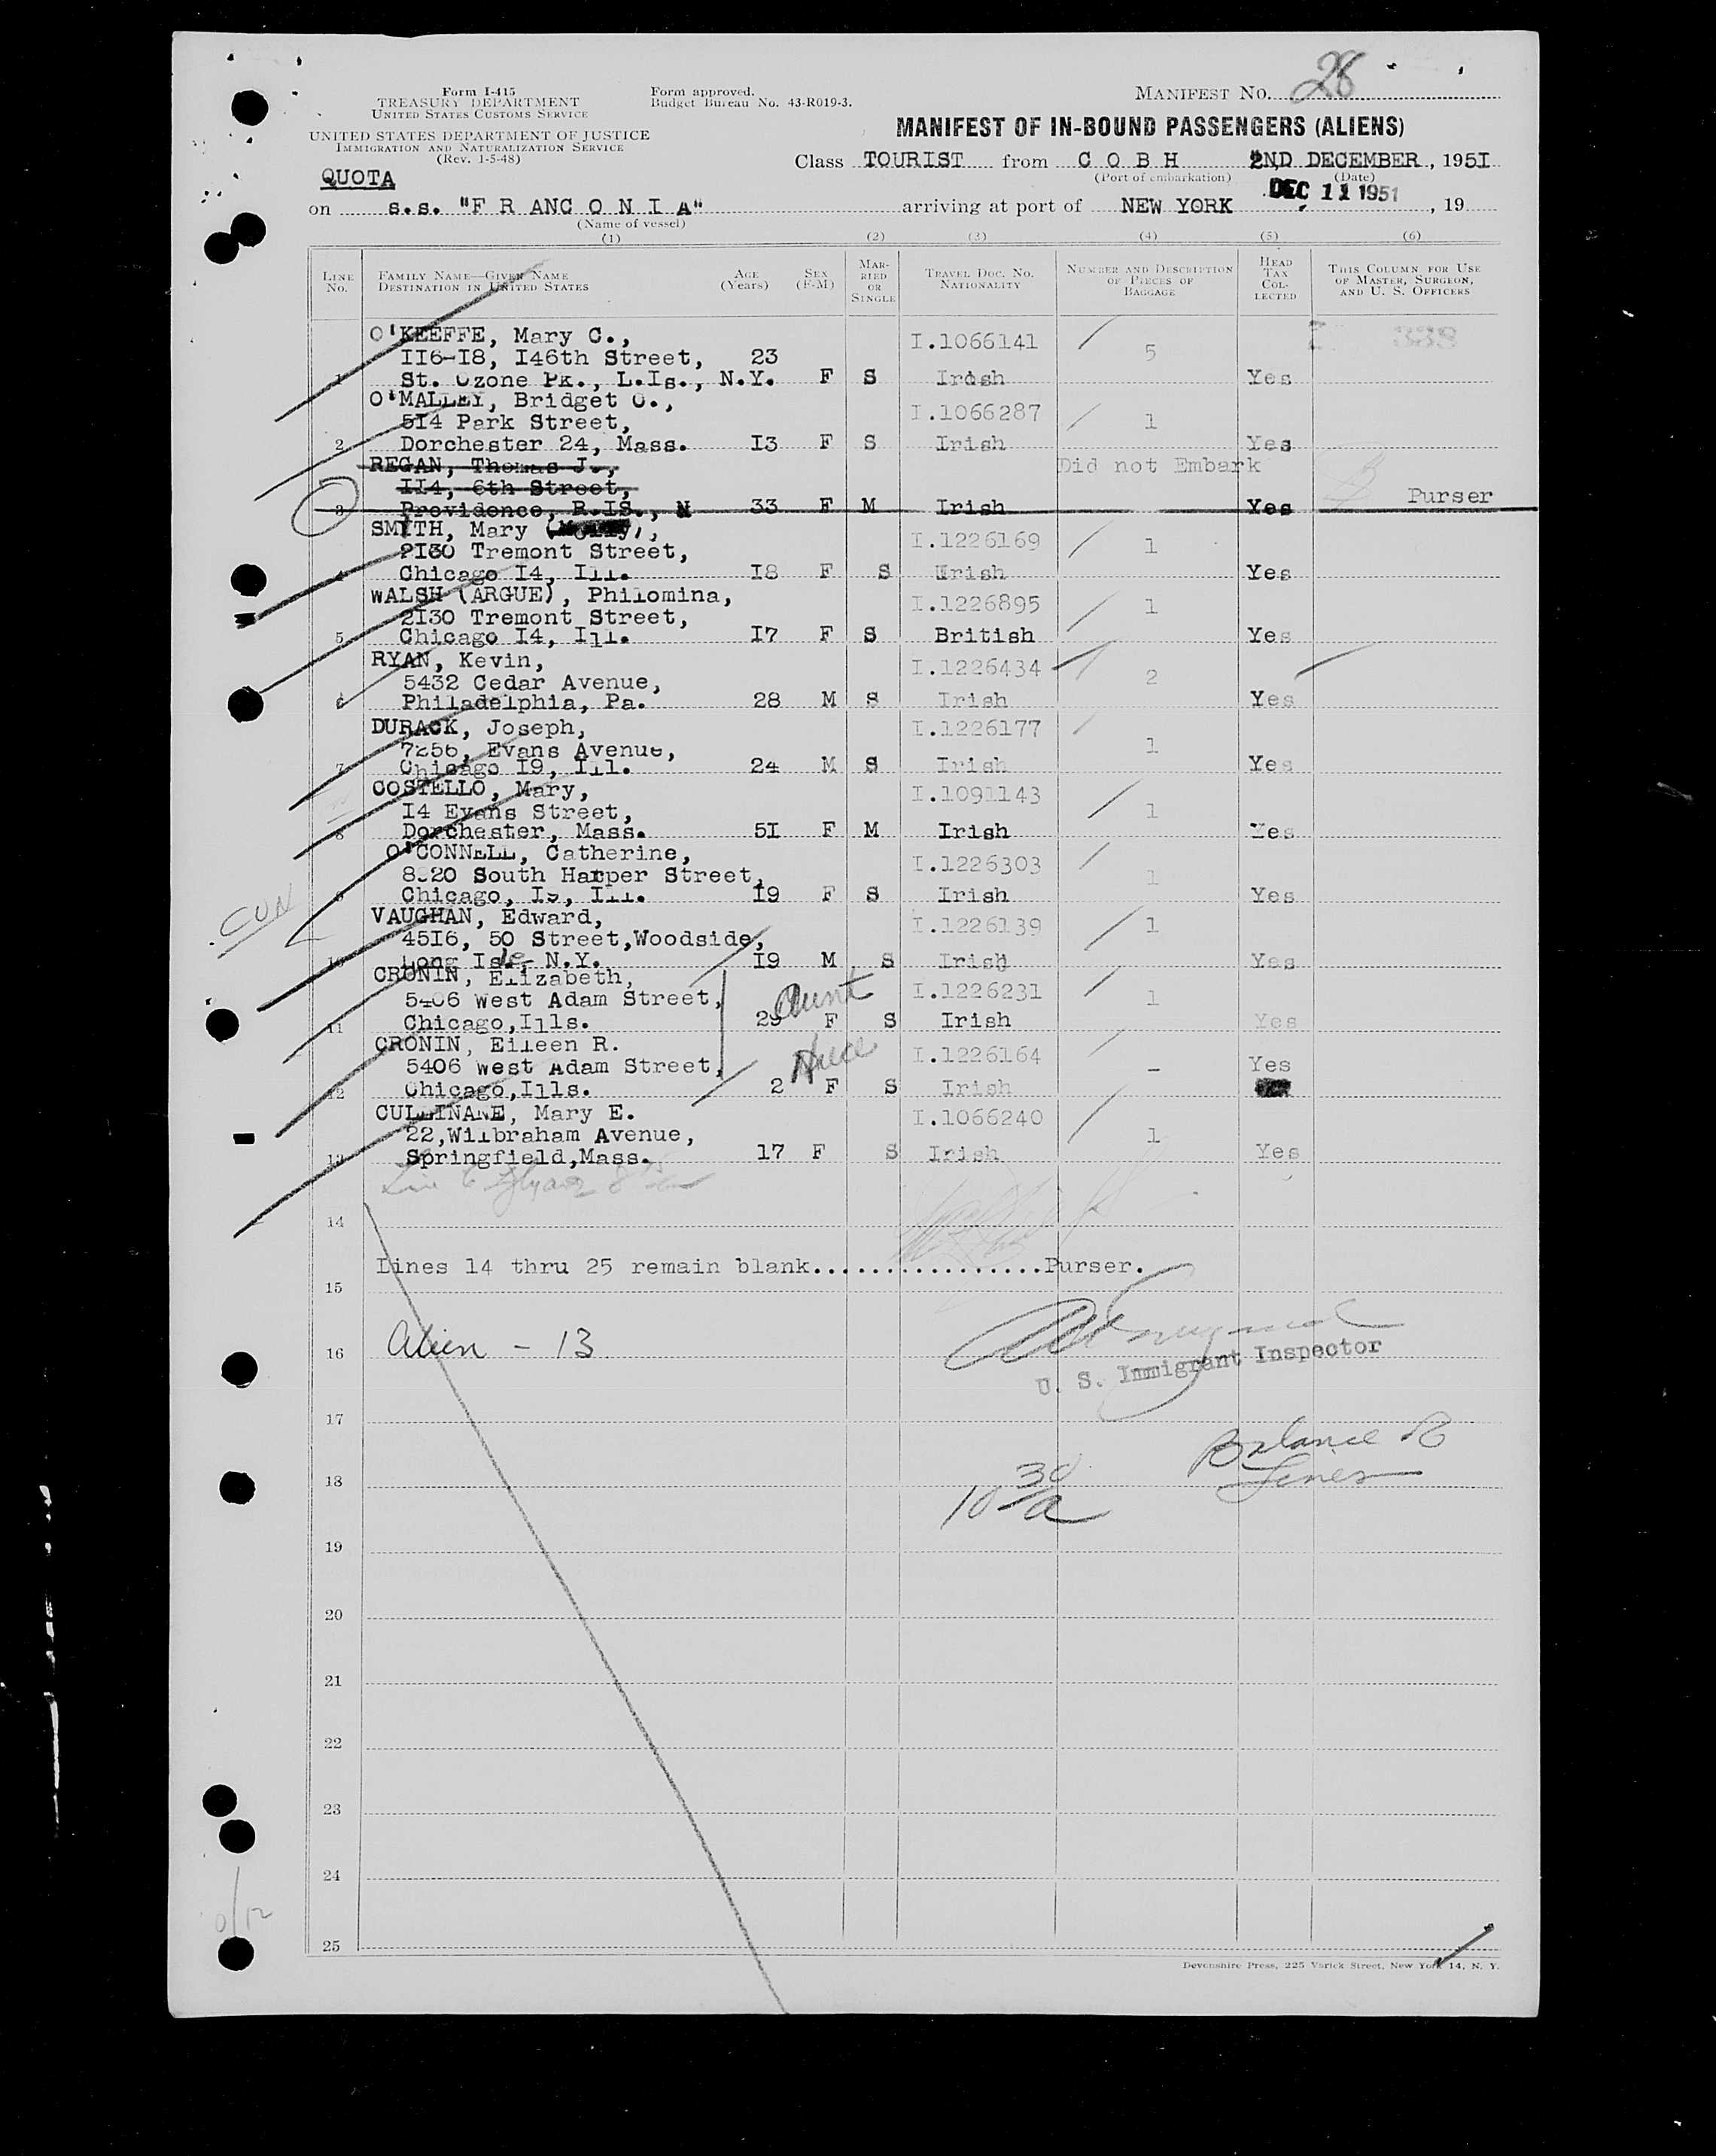 Form I-415
TREASURY DEPARTMENT
UNITED STATES CUSTOMS SERVICE
UNITED STATES DEPARTMENT OF JUSTICE
IMMIGRATION AND NATURALIZATION SERVICE
(Rev. 1-5-48)
Form approved.
Budget Bureau No. 43-R019-3.
MANIFEST NO. 28
MANIFEST OF IN-BOUND PASSENGERS (ALIENS)
Class TOURIST from C O B H 2ND DECEMBER, 195I
(Port of embarkation) (Date)
QUOTA
DEC 11 1951
on s.s. "F R ANC O N I A" arriving at port of NEW YORK , 19
(Name of vessel)
(1) (2) (3) (4) (5) (6)
LINE NO. FAMILY NAME—GIVEN NAME DESTINATION IN UNITED STATES AGE (Years) SEX (F-M) MARRIED OR SINGLE TRAVEL DOC. NO. NATIONALITY NUMBER AND DESCRIPTION OF PIECES OF BAGGAGE HEAD TAX COLLECTED THIS COLUMN FOR USE OF MASTER, SURGEON, AND U. S. OFFICERS
O'KEEFFE, Mary C., I.1066141 5
II6-I8, I46th Street, 23
1 St. Ozone Pk., L.Is., N.Y. F S Irish Yes
O'MALLEY, Bridget C., I.1066287 1
5I4 Park Street,
2 Dorchester 24, Mass. I3 F S Irish Yes
REGAN, Thomas J., Did not Embark
II4, 6th Street, Purser
3 Providence, R.IS., N 33 F M Irish Yes
SMITH, Mary I.1226169 1
2I30 Tremont Street,
4 Chicago I4, Ill. I8 F S Irish Yes
WALSH (ARGUE), Philomina, I.1226895 1
2I30 Tremont Street,
5 Chicago I4, Ill. I7 F S British Yes
RYAN, Kevin, I.1226434 2
5432 Cedar Avenue,
6 Philadelphia, Pa. 28 M S Irish Yes
DURACK, Joseph, I.1226177 1
7256, Evans Avenue,
7 Chicago I9, Ill. 24 M S Irish Yes
COSTELLO, Mary, I.1091143 1
I4 Evans Street,
8 Dorchester, Mass. 5I F M Irish Yes
O'CONNELL, Catherine, I.1226303 1
South Harper Street,
9 Chicago, Ill. I9 F S Irish Yes
VAUGHAN, Edward, I.1226139 1
45I6, 50 Street,Woodside,
10 Long Isle N.Y. I9 M S Irish Yes
CRONIN, Elizabeth, Aunt I.1226231 1
5406 West Adam Street,
11 Chicago,Ills. 29 F S Irish Yes
CRONIN, Eileen R. Niece I.1226164 –
5406 West Adam Street, Yes
12 Chicago,Ills. 2 F S Irish
CULLINANE, Mary E. I.1066240 1
22,Wilbraham Avenue,
13 Springfield,Mass. 17 F S Irish Yes
14
Lines 14 thru 25 remain blank.................Purser.
15
16 Alien - 13
U. S. Immigrant Inspector
17
Balance
Lines
18 10 30/a
19
20
21
22
23
24
25
Devonshire Press, 225 Varick Street, New York 14, N. Y.